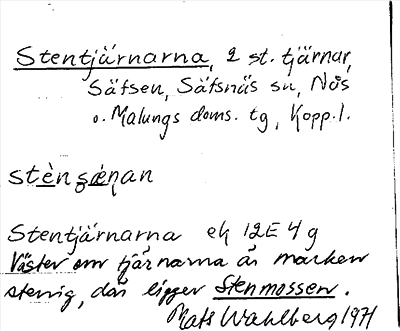 Stentjärnarna, 2 st. tjärnar,
Säfsen, Säfsnäs sn, Nås
o. Malungs doms. tg, Kopp. l.
stènʒǽṇan
Stentjärnarna ek 12E 4 g
Väster om tjärnarna är marken
stenig, där ligger Stenmossen.
Mats Wahlberg 1971